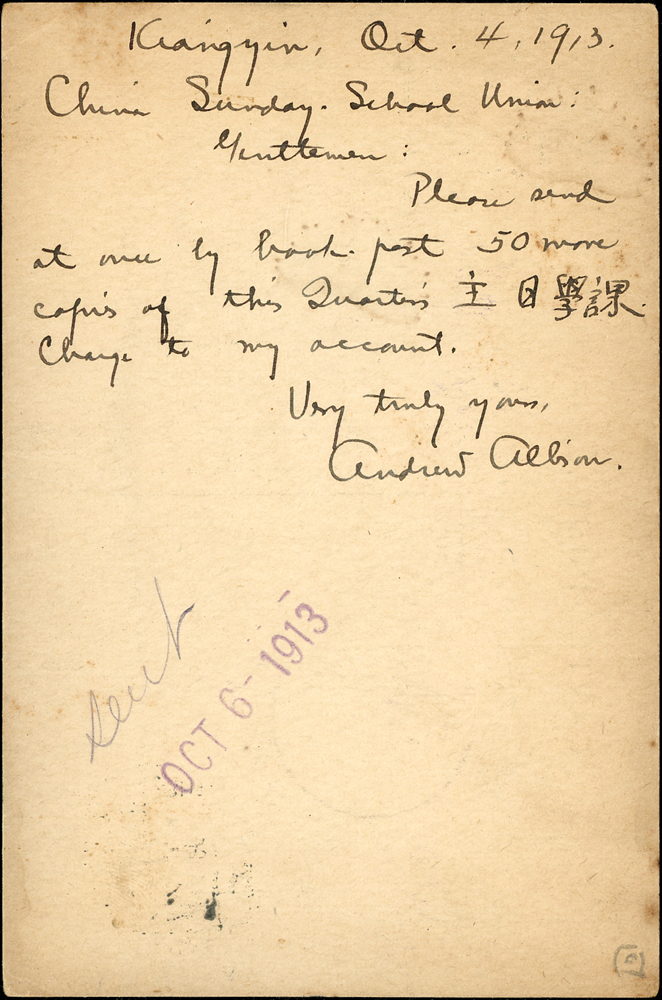 Kiangyin, Oct. 4, 1913.
China Sunday-School Union:
Gentlemen:
Please send
at once by book-post 50 more
copies of this Quarter's 主日學課.
Charge to my account.
Very truly yours,
Andrew Allison.
sent
OCT 6- 1913